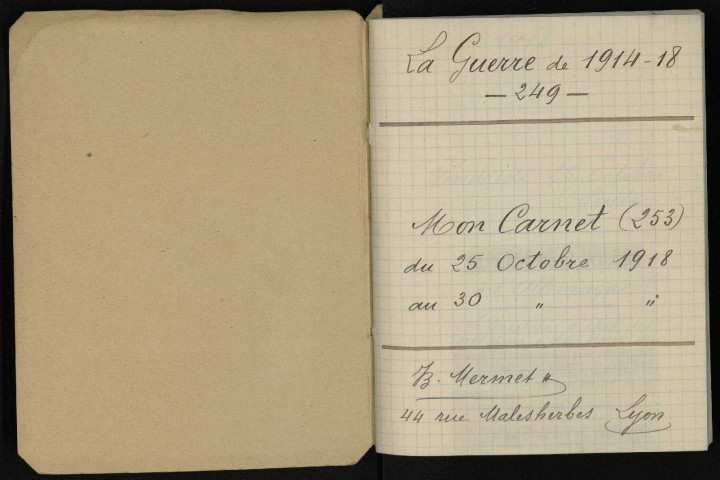 La Guerre de 1914-18
— 249 —
Mon Carnet (253)
du 25 Octobre 1918
au 30 " "
B. Mermet
44 rue Malesherbes Lyon